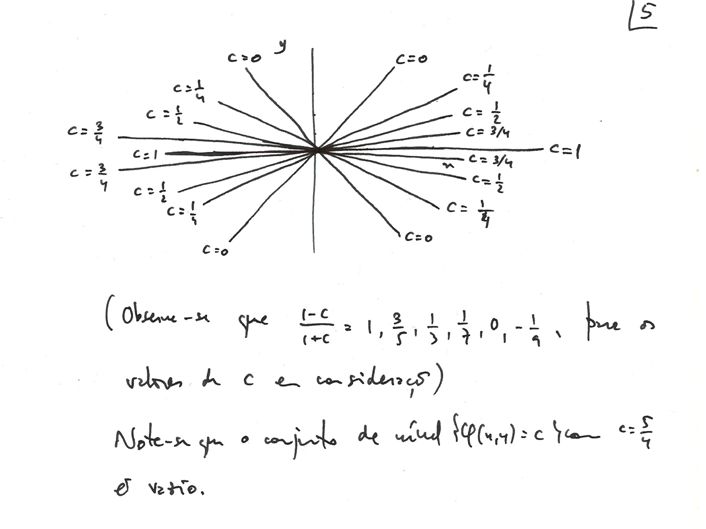 5
c=0 y c=0
c=1/4 c=1/4
c=1/2 c=1/2
c=3/4 c=3/4
c=1 c=1
c=3/4 x c=3/4
c=1/2 c=1/2
c=1/4 c=1/4
c=0 c=0
(Observe-se que (1-c)/(1+c) = 1, 3/5, 1/3, 1/7, 0, -1/9, para os
valores de c em consideração)
Note-se que o conjunto de nível {φ(x,y)=c} com c=5/4
é vazio.